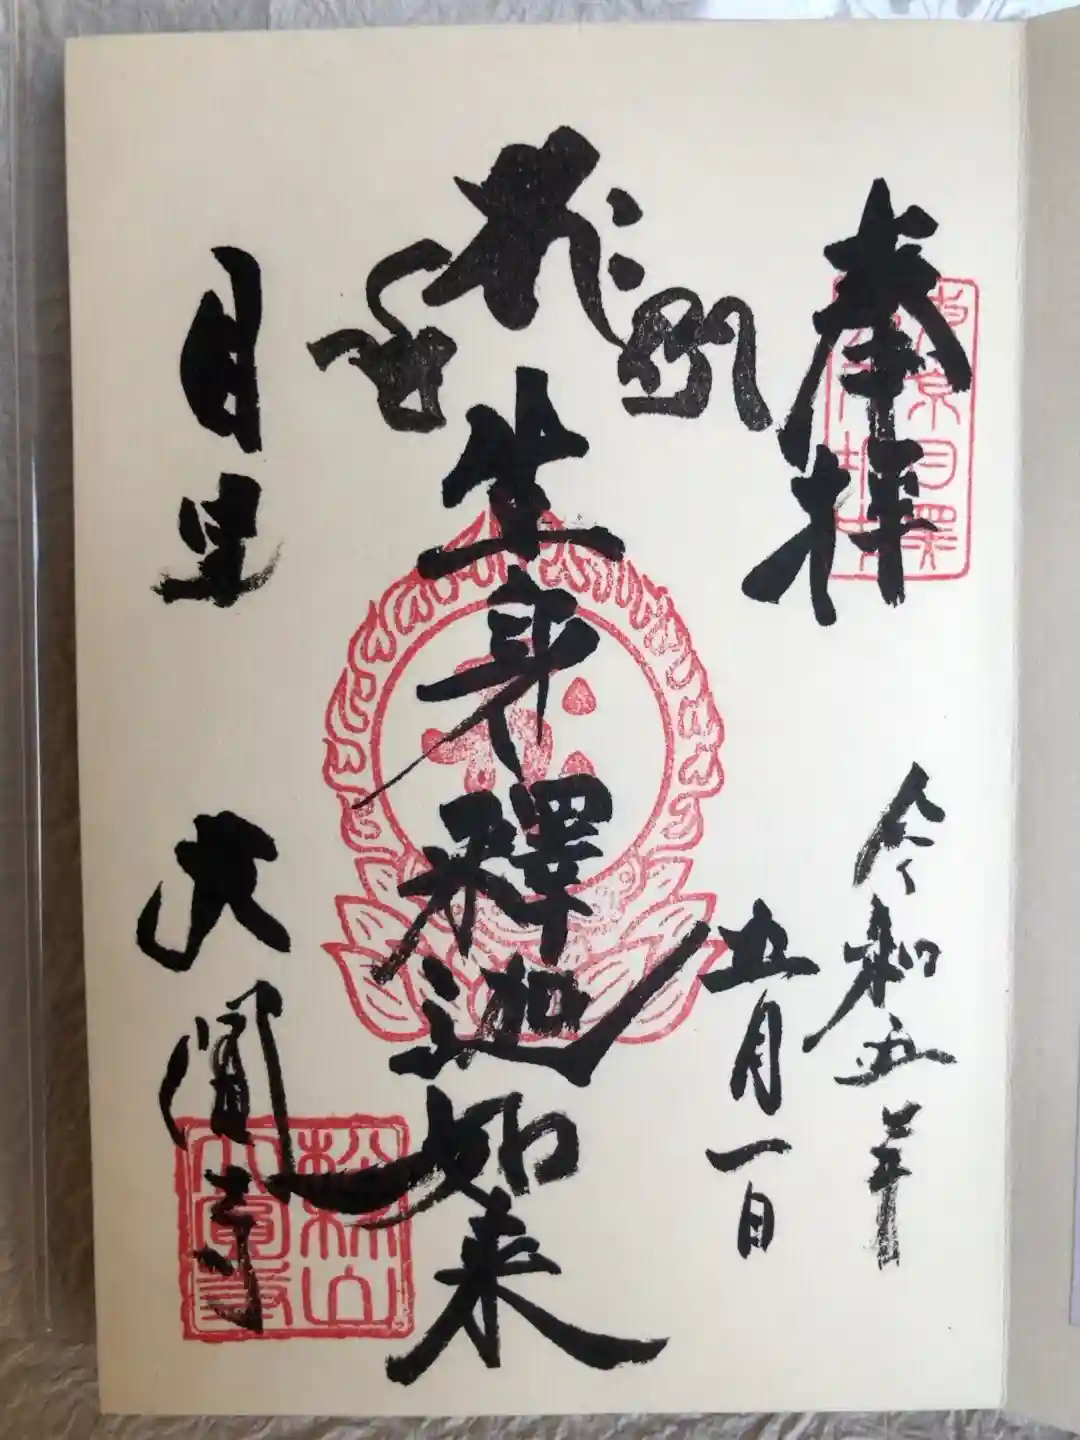 奉拝
令和五年
五月一日
生身釋迦如来
目黒
大圓寺
松林山
大圓寺